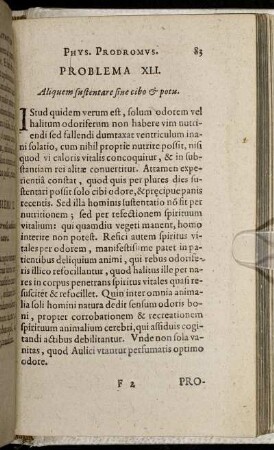 PHYS. PRODROMVS. 83
PROBLEMA XLI.
Aliquem sustentare sine cibo & potu.
IStud quidem verum est, solum odorem vel
halitum odoriferum non habere vim nutri-
endi sed fallendi dumtaxat ventriculum ina-
ni solatio, cum nihil propriè nutrire possit, nisi
quod vi caloris vitalis concoquitur, & in sub-
stantiam rei alitæ conuertitur. Attamen expe-
rientiâ constat, quod quis per plures dies sus-
tentari possit solo cibi odore, & præcipue panis
recentis. Sed illa hominis sustentatio nõ sit per
nutritionem; sed per refectionem spirituum
vitalium: qui quamdiu vegeti manent, homo
interire non potest. Refici autem spiritus vi-
tales per odorem, manifestissimè patet in pa-
tientibus deliquium animi, qui rebus odorife-
ris illico refocillantur, quod halitus ille per na-
res in corpus penetrans spiritus vitales quasi re-
suscitet & refocillet. Quin inter omnia anima-
lia soli homini natura dedit sensum odoris bo-
ni, propter corrobationem & recreationem
spirituum animalium cerebri, qui assiduis cogi-
tandi actibus debilitantur. Vnde non sola va-
nitas, quod Aulici vtantur persumatis optimo
odore.
F 2 PRO-